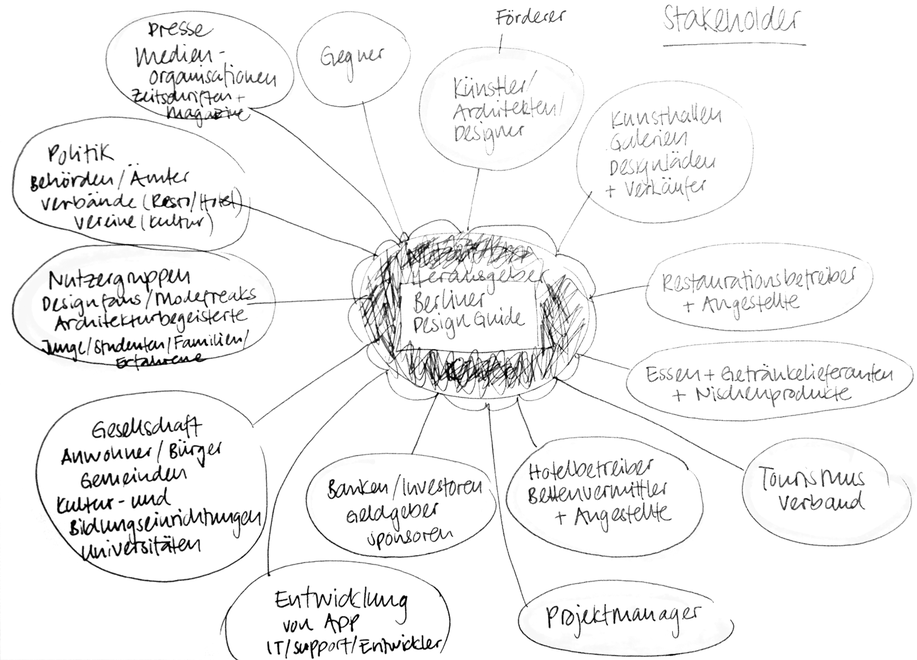 Stakeholder
Förderer
Presse
Medien-
organisationen
Zeitschriften +
Magazine
Gegner
Künstler/
Architekten/
Designer
Kunsthallen
Galerien
Designläden
+ Verkäufer
Politik
Behörden/Ämter
Verbände (Resto/Hotel)
Vereine (Kultur)
Herausgeber
Berliner
Design Guide
Restaurationsbetreiber
+ Angestellte
Nutzergruppen
Designfans/Modefreaks
Architekturbegeisterte
Junge/Studenten/Familien/
Erfahrene
Essen + Getränkelieferanten
+ Nischenprodukte
Gesellschaft
Anwohner/Bürger
Gemeinden
Kultur- und
Bildungseinrichtungen
Universitäten
Banken/Investoren
Geldgeber
Sponsoren
Hotelbetreiber
Bettenvermittler
+ Angestellte
Tourismus
verband
Entwicklung
von APP
IT/Support/Entwickler
Projektmanager